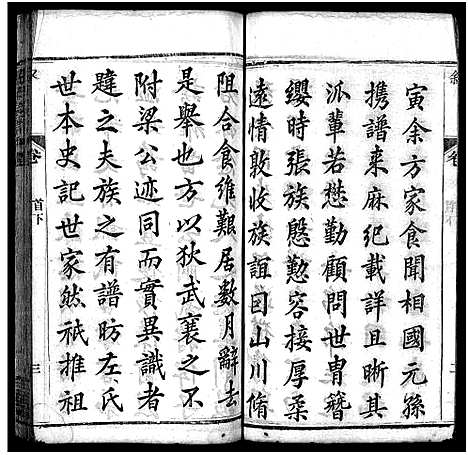 寅余方家食聞相國元孫
攜譜來麻紀載詳且晰其
派輩若懋勤顧問世冑簪
纓時張族慇懃容接厚柔
遠情敦收族誼因山川脩
阻合食維艱居數月辭去
是舉也方以狄武襄之不
附梁公迹同而實異識者
韙之夫族之有譜昉左氏
世本史記世家然衹推祖
卷
首下
三